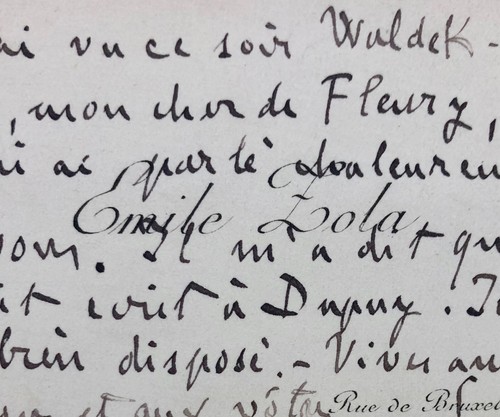 ai vu ce soir Waldek-
, mon cher de Fleury,
ui ai parlé chaleureu
Emile Zola
vous. Il m'a dit qu
it écrit à Dupuy. I
bien disposé. - Vives am
et aux vôtres
Rue de Bruxel